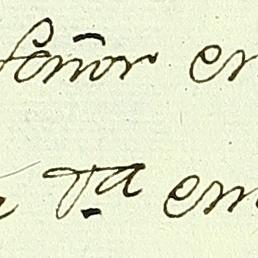 Señor en
Vª em